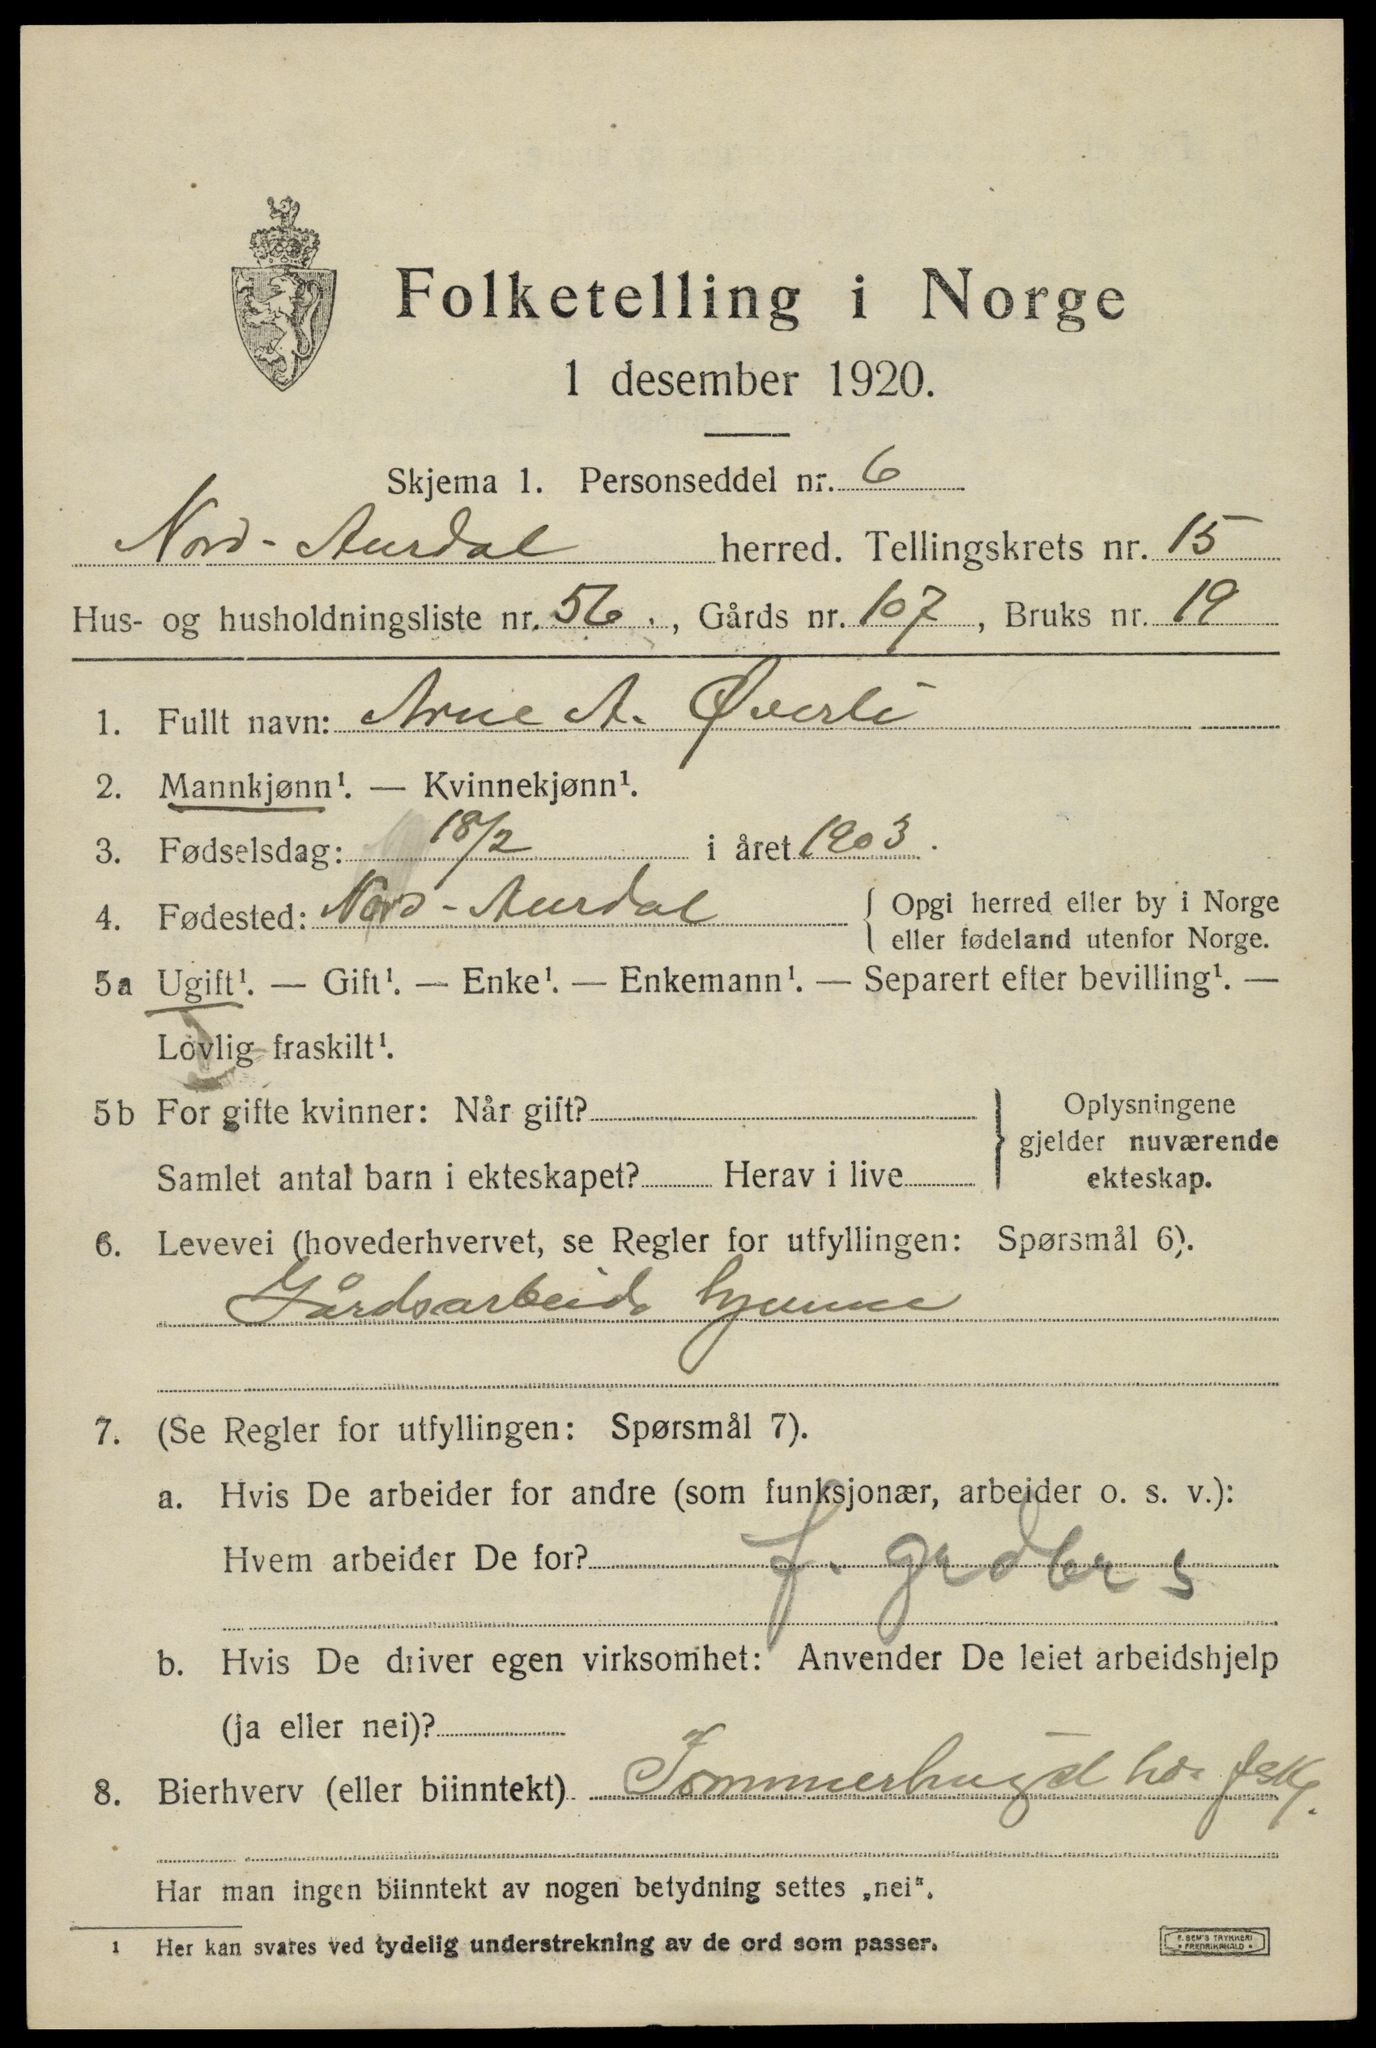 Folketelling i Norge
1 desember 1920.
Skjema 1. Personseddel nr. 6
Nord-Aurdal herred. Tellingskrets nr. 15
Hus- og husholdningsliste nr. 56., Gårds nr. 107, Bruks nr. 19
1. Fullt navn: Arne A. Øverli
2. Mannkjønn¹. — Kvinnekjønn¹.
3. Fødselsdag: 18/2 i året 1903.
4. Fødested: Nord-Aurdal { Opgi herred eller by i Norge
eller fødeland utenfor Norge.
5a Ugift¹. — Gift¹. — Enke¹. — Enkemann¹. — Separert efter bevilling¹. —
Lovlig fraskilt¹.
5b For gifte kvinner: Når gift?
Samlet antal barn i ekteskapet? Herav i live
} Oplysningene
gjelder nuværende
ekteskap.
6. Levevei (hovederhvervet, se Regler for utfyllingen: Spørsmål 6).
Gårdsarbeide hjemme
7. (Se Regler for utfyllingen: Spørsmål 7).
a. Hvis De arbeider for andre (som funksjonær, arbeider o. s. v.):
Hvem arbeider De for? f. grdbr s
b. Hvis De driver egen virksomhet: Anvender De leiet arbeidshjelp
(ja eller nei)?
8. Bierhverv (eller biinntekt) Tømmerhugst
Har man ingen biinntekt av nogen betydning settes „nei“.
1 Her kan svares ved tydelig understrekning av de ord som passer.
F. SEM'S TRYKKERI
• FREDRIKSHALD •